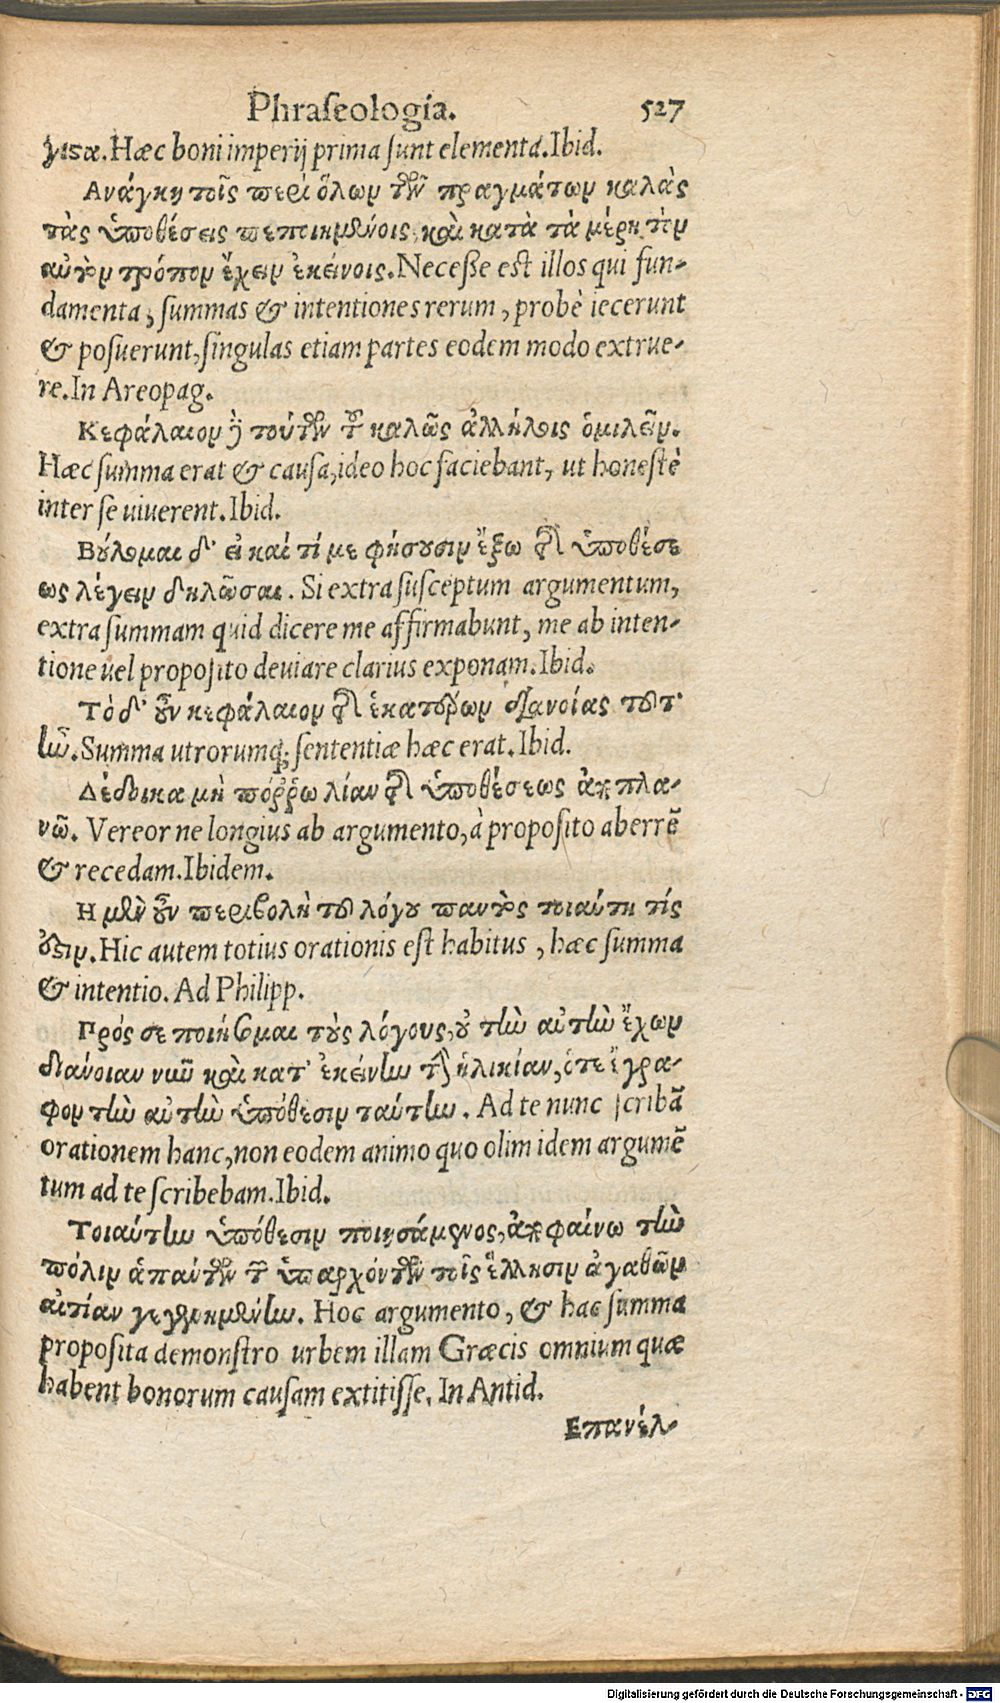 Phraseologia. 527
γιςα. Hæc boni imperij prima sunt elementa. Ibid.
Ανάγκη τοῖς περὶ ὅλων τῶν πραγμάτων καλὰς
τὰς ὑποθέσεις πεποιημένοις, καὶ κατὰ τὰ μέρη τὸν
αὐτὸν τρόπον ἔχειν ἐκείνοις. Necesse est illos qui fun-
damenta, summas & intentiones rerum, probè iecerunt
& posuerunt, singulas etiam partes eodem modo extrue-
re. In Areopag.
Κεφάλαιον ἢ τούτων τοῦ καλῶς ἀλλήλοις ὁμιλεῖν.
Hæc summa erat & causa, ideo hoc faciebant, ut honestè
inter se uiuerent. Ibid.
Βούλομαι δ' εἰ καί τί με φήσουσιν ἔξω τῆς ὑποθέσε
ως λέγειν δηλῶσαι. Si extra susceptum argumentum,
extra summam quid dicere me affirmabunt, me ab inten-
tione uel proposito deuiare clarius exponam. Ibid.
Τὸ δ' οὖν κεφάλαιον τῆς ἑκατέρων διανοίας τοῦτ'
ἦν. Summa utrorumq; sententiæ hæc erat. Ibid.
Δέδοικα μὴ πόῤῥω λίαν τῆς ὑποθέσεως ἀποπλα-
νῶ. Vereor ne longius ab argumento, à proposito aberrē
& recedam. Ibidem.
Η μὲν οὖν περιβολὴ τοῦ λόγου παντὸς τοιαύτη τίς
ὅστιν. Hic autem totius orationis est habitus, hæc summa
& intentio. Ad Philipp.
Πρός σε ποιήσομαι τοὺς λόγους, οὐ τὴν αὐτὴν ἔχων
διάνοιαν νυνὶ καὶ κατ' ἐκείνην τὴν ἡλικίαν, ὅτε ἔγρα-
φον τὴν αὐτὴν ὑπόθεσιν ταύτην. Ad te nunc scribā
orationem hanc, non eodem animo quo olim idem argumē
tum ad te scribebam. Ibid.
Τοιαύτην ὑπόθεσιν ποιησάμενος, ἀποφαίνω τὴν
πόλιν ἁπάντων τῶν ὑπαρχόντων τοῖς ἕλλησιν ἀγαθῶν
αἰτίαν γεγενημένην. Hoc argumento, & hac summa
proposita demonstro urbem illam Græcis omnium quæ
habent bonorum causam extitisse. In Antid.
Επανέλ-
Digitalisierung gefördert durch die Deutsche Forschungsgemeinschaft - DFG